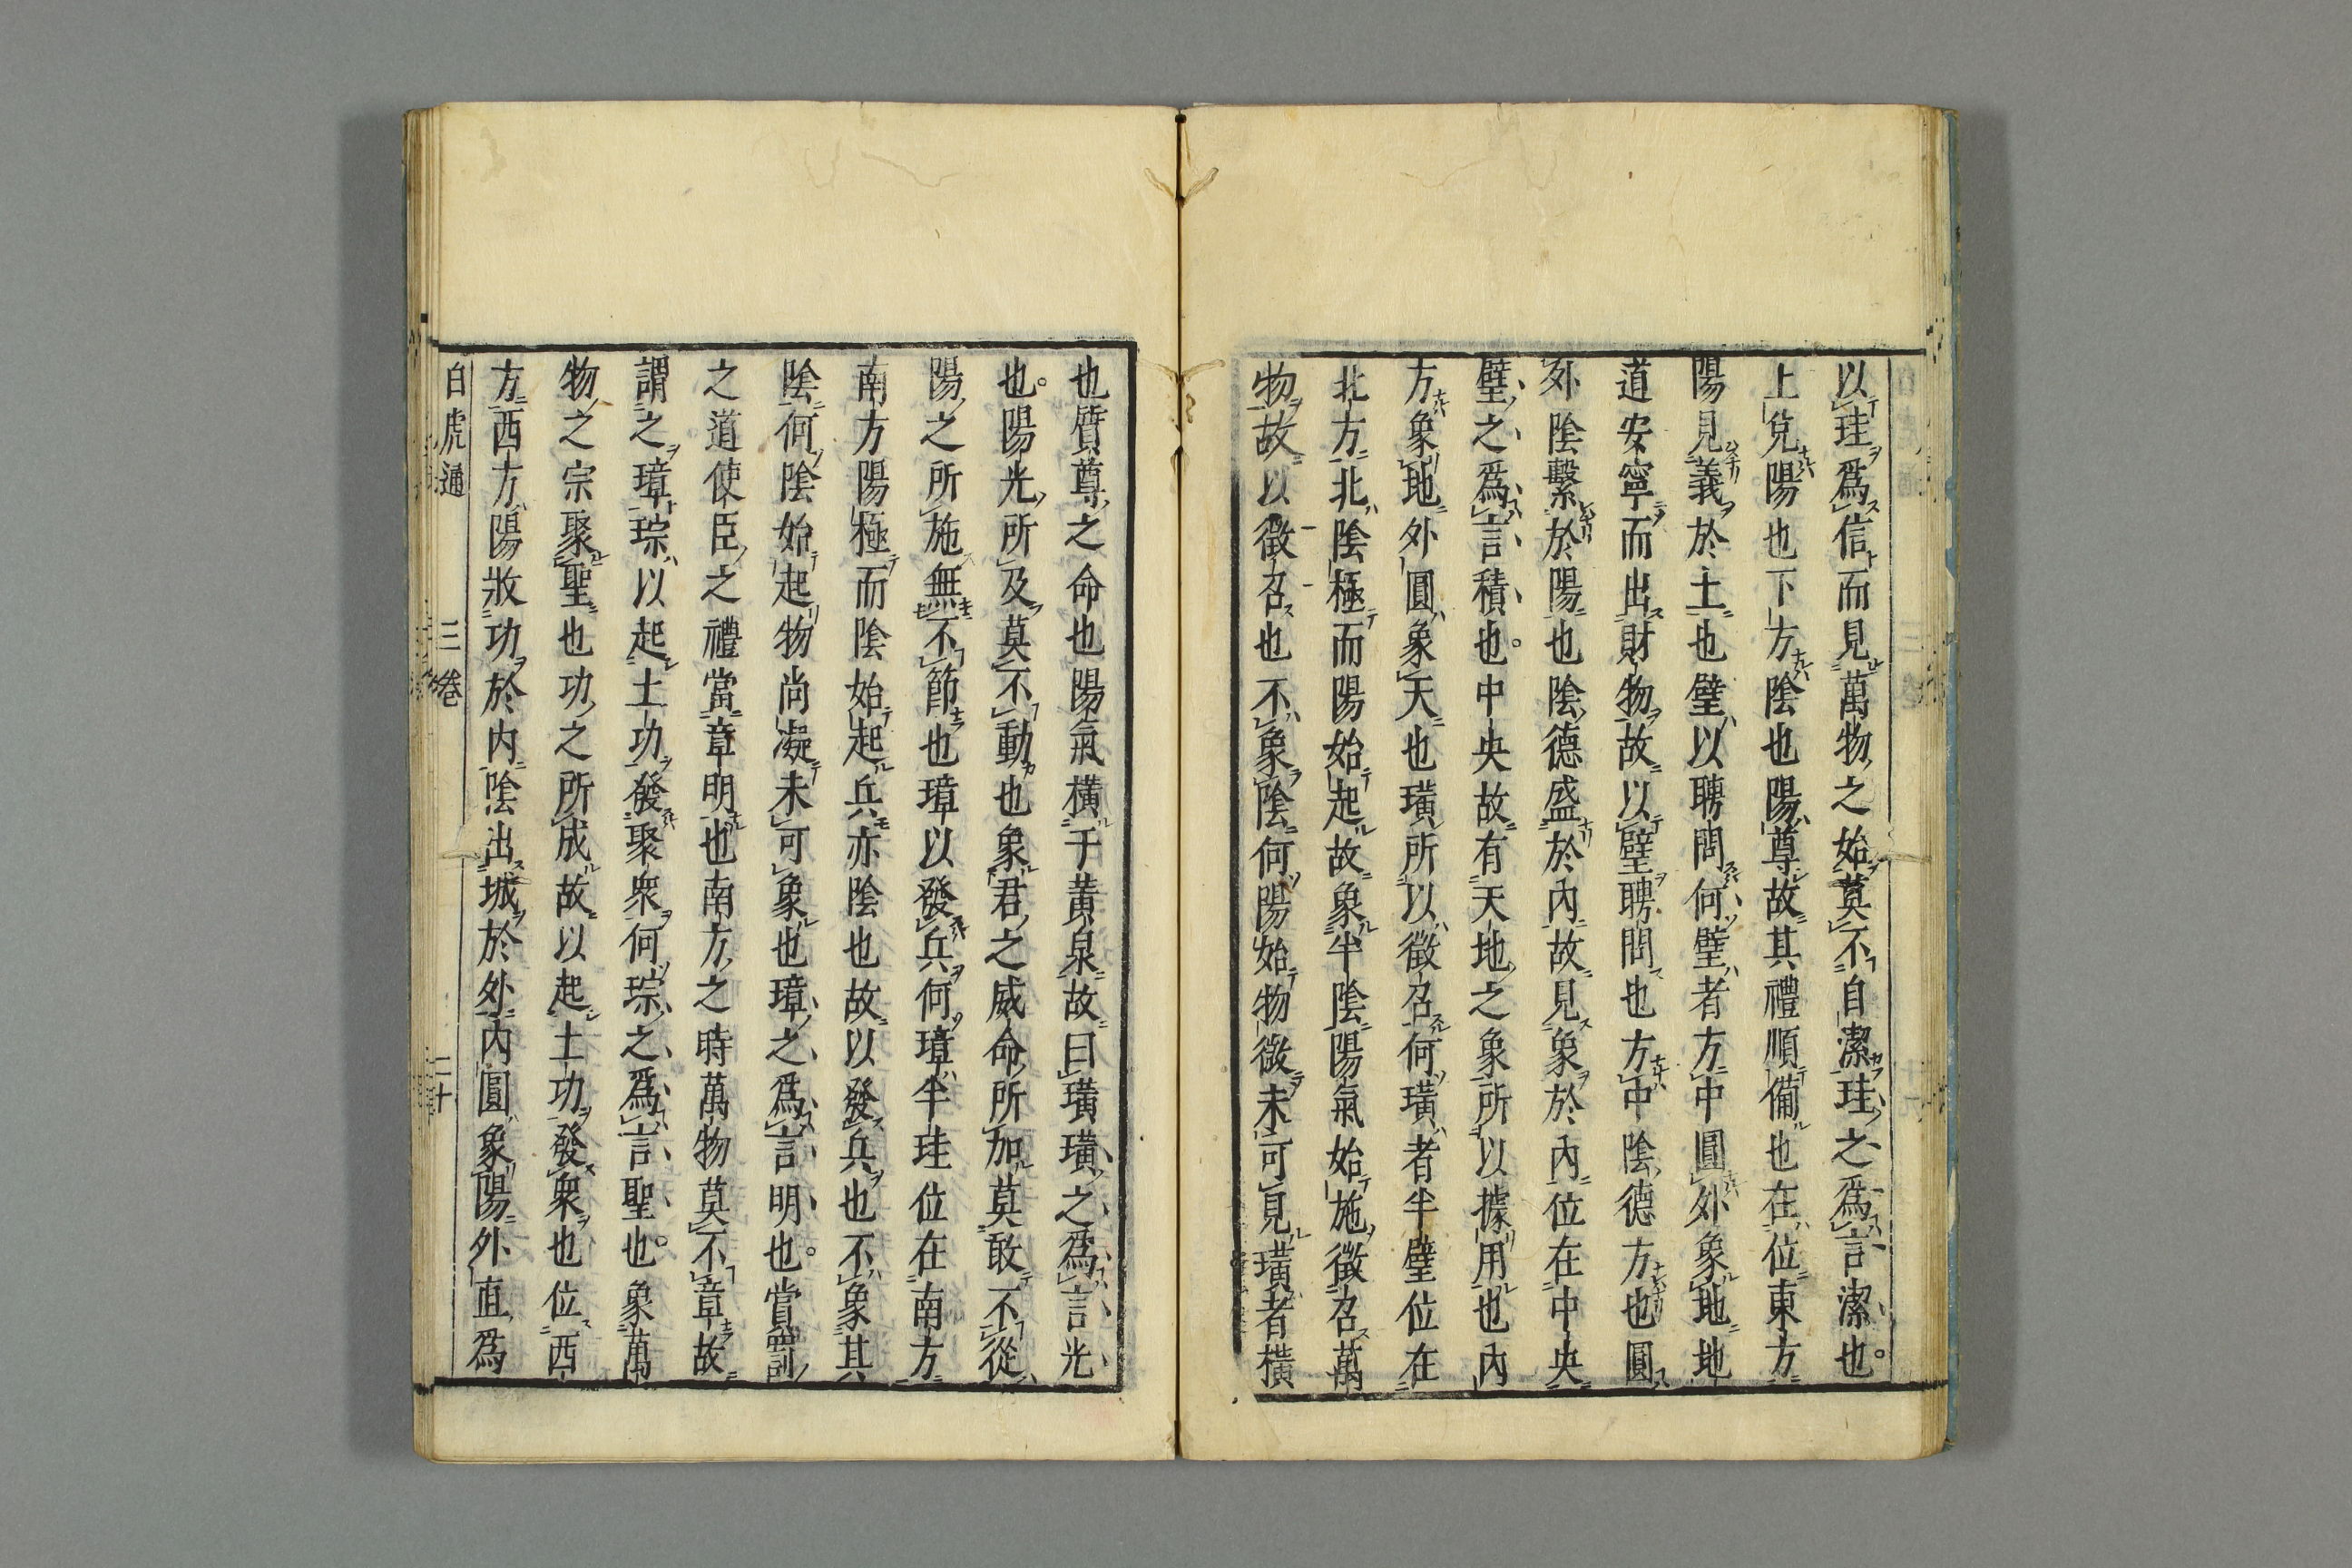 以珪爲信而見萬物之始莫不自潔珪之爲言潔也。
上兌陽也下方陰也陽尊故其禮順備也在位東方
陽見義於土也璧以聘問何璧者方中圓外象地地
道安寧而出財物故以璧聘問也方中陰德方也圓
外陰繫於陽也陰德盛於內故見象於內位在中央
璧之爲言積也。中央故有天地之象所以據用也內
方象地外圓象天也璜所以徵召何璜者半璧位在
北方北陰極而陽始起故象半陰陽氣始施徵召萬
物故以徵召也不象陰何陽始物微未可見璜者橫
也質尊之命也陽氣橫于黃泉故曰璜璜之爲言光
也。陽光所及莫不動也象君之威命所加莫敢不從
陽之所施無不節也璋以發兵何璋半珪位在南方
南方陽極而陰始起兵亦陰也故以發兵也不象其
陰何陰始起物尚凝未可象也璋之爲言明也。賞罰
之道使臣之禮當章明也南方之時萬物莫不章故
謂之璋琮以起土功發聚衆何琮之爲言聖也。象萬
物之宗聚聖也功之所成故以起土功發衆也位西
方西方陽收功於內陰出城於外內圓象陽外直爲
白虎通 三卷 二十